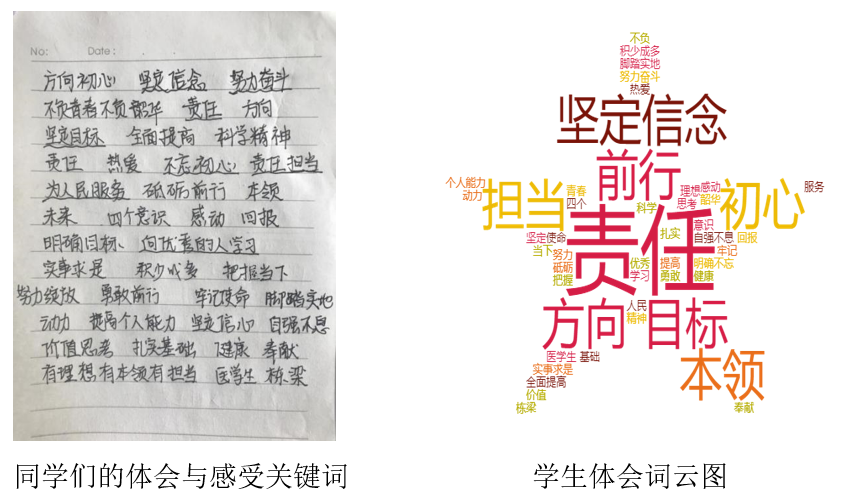 No:
Date: . .
方向初心 坚定信念 努力奋斗
不负青春不负韶华 责任 方向
坚定目标 全面提高 科学精神
责任 热爱 不忘初心 责任担当
为人民服务 砥砺前行 本领
未来 四个意识 感动 回报
明确目标、向优秀的人学习
实事求是 积少成多 把握当下
努力绽放 勇敢前行 牢记使命 脚踏实地
动力 提高个人能力 坚定信心 自强不息
价值思考 扎实基础 健康 奉献
有理想有本领有担当 医学生 栋梁
同学们的体会与感受关键词
不负
积少成多
脚踏实地
努力奋斗
热爱
坚定信念
前行
个人能力
动力
担当
青春
四个
科学
理想
感动
思考
韶华
初心
服务
意识
坚定使命
当下
责任
扎实
自强不息
回报
牢记
努力
砥砺
把握
优秀
提高
明确不忘
学习
勇敢
健康
人民
精神
方向
目标
医学生
基础
实事求是
全面提高
价值
栋梁
本领
奉献
学生体会词云图